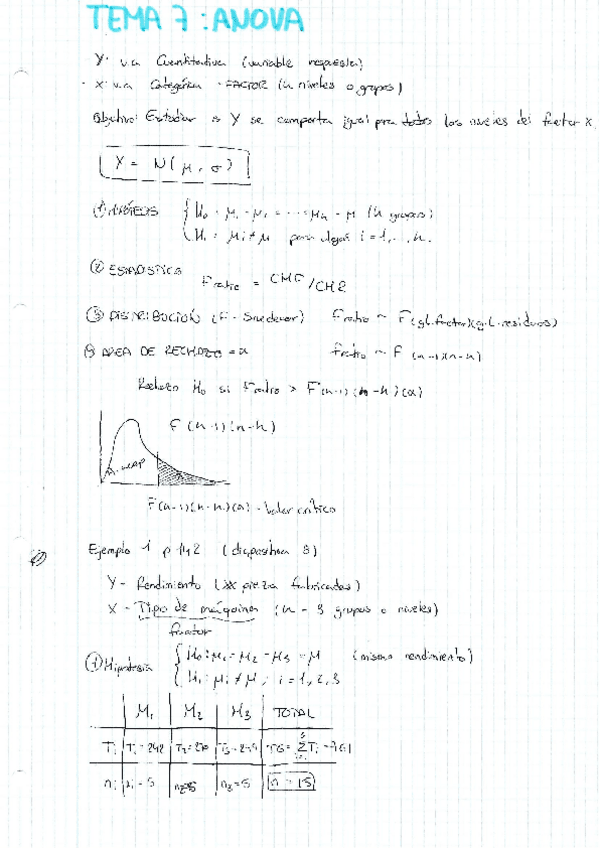 TEMA 7: ANOVA
Y: v.a Cuantitativa (variable respuesta)
X: v.a Categórica - FACTOR (k niveles o grupos)
Objetivo: Estudiar si Y se comporta igual para todos los niveles del factor X.
Y = N(μ, σ)
① HIPÓTESIS { H0: μ1 = μ2 = ... = μk = μ (k grupos)
H1: μi ≠ μ para algún i = 1,..., k.
② ESTADÍSTICO Fratio = CMF/CMR
③ DISTRIBUCIÓN (F-Snedecor) Fratio ~ F(gl.factor)(g.l.residuos)
④ AREA DE RECHAZO = α Fratio ~ F (k-1)(n-k)
Rechazo H0 si Fratio > F(k-1)(n-k)(α)
F (k-1)(n-k)
F(k-1)(n-k)(α) - Valor crítico
Ejemplo 1 p 142 (diapositiva 8)
Y - Rendimiento (piezas fabricadas)
X - Tipo de máquina (k = 3 grupos o niveles)
factor
① Hipótesis { H0: μ1 = μ2 = μ3 = μ (mismo rendimiento)
H1: μi ≠ μ; i = 1, 2, 3
M1 M2 M3 TOTAL
Ti T1 = 242 T2 = T3 = TG = ΣTi = 761
ni n1 = 5 n2 = 5 n3 = 5 n = 15